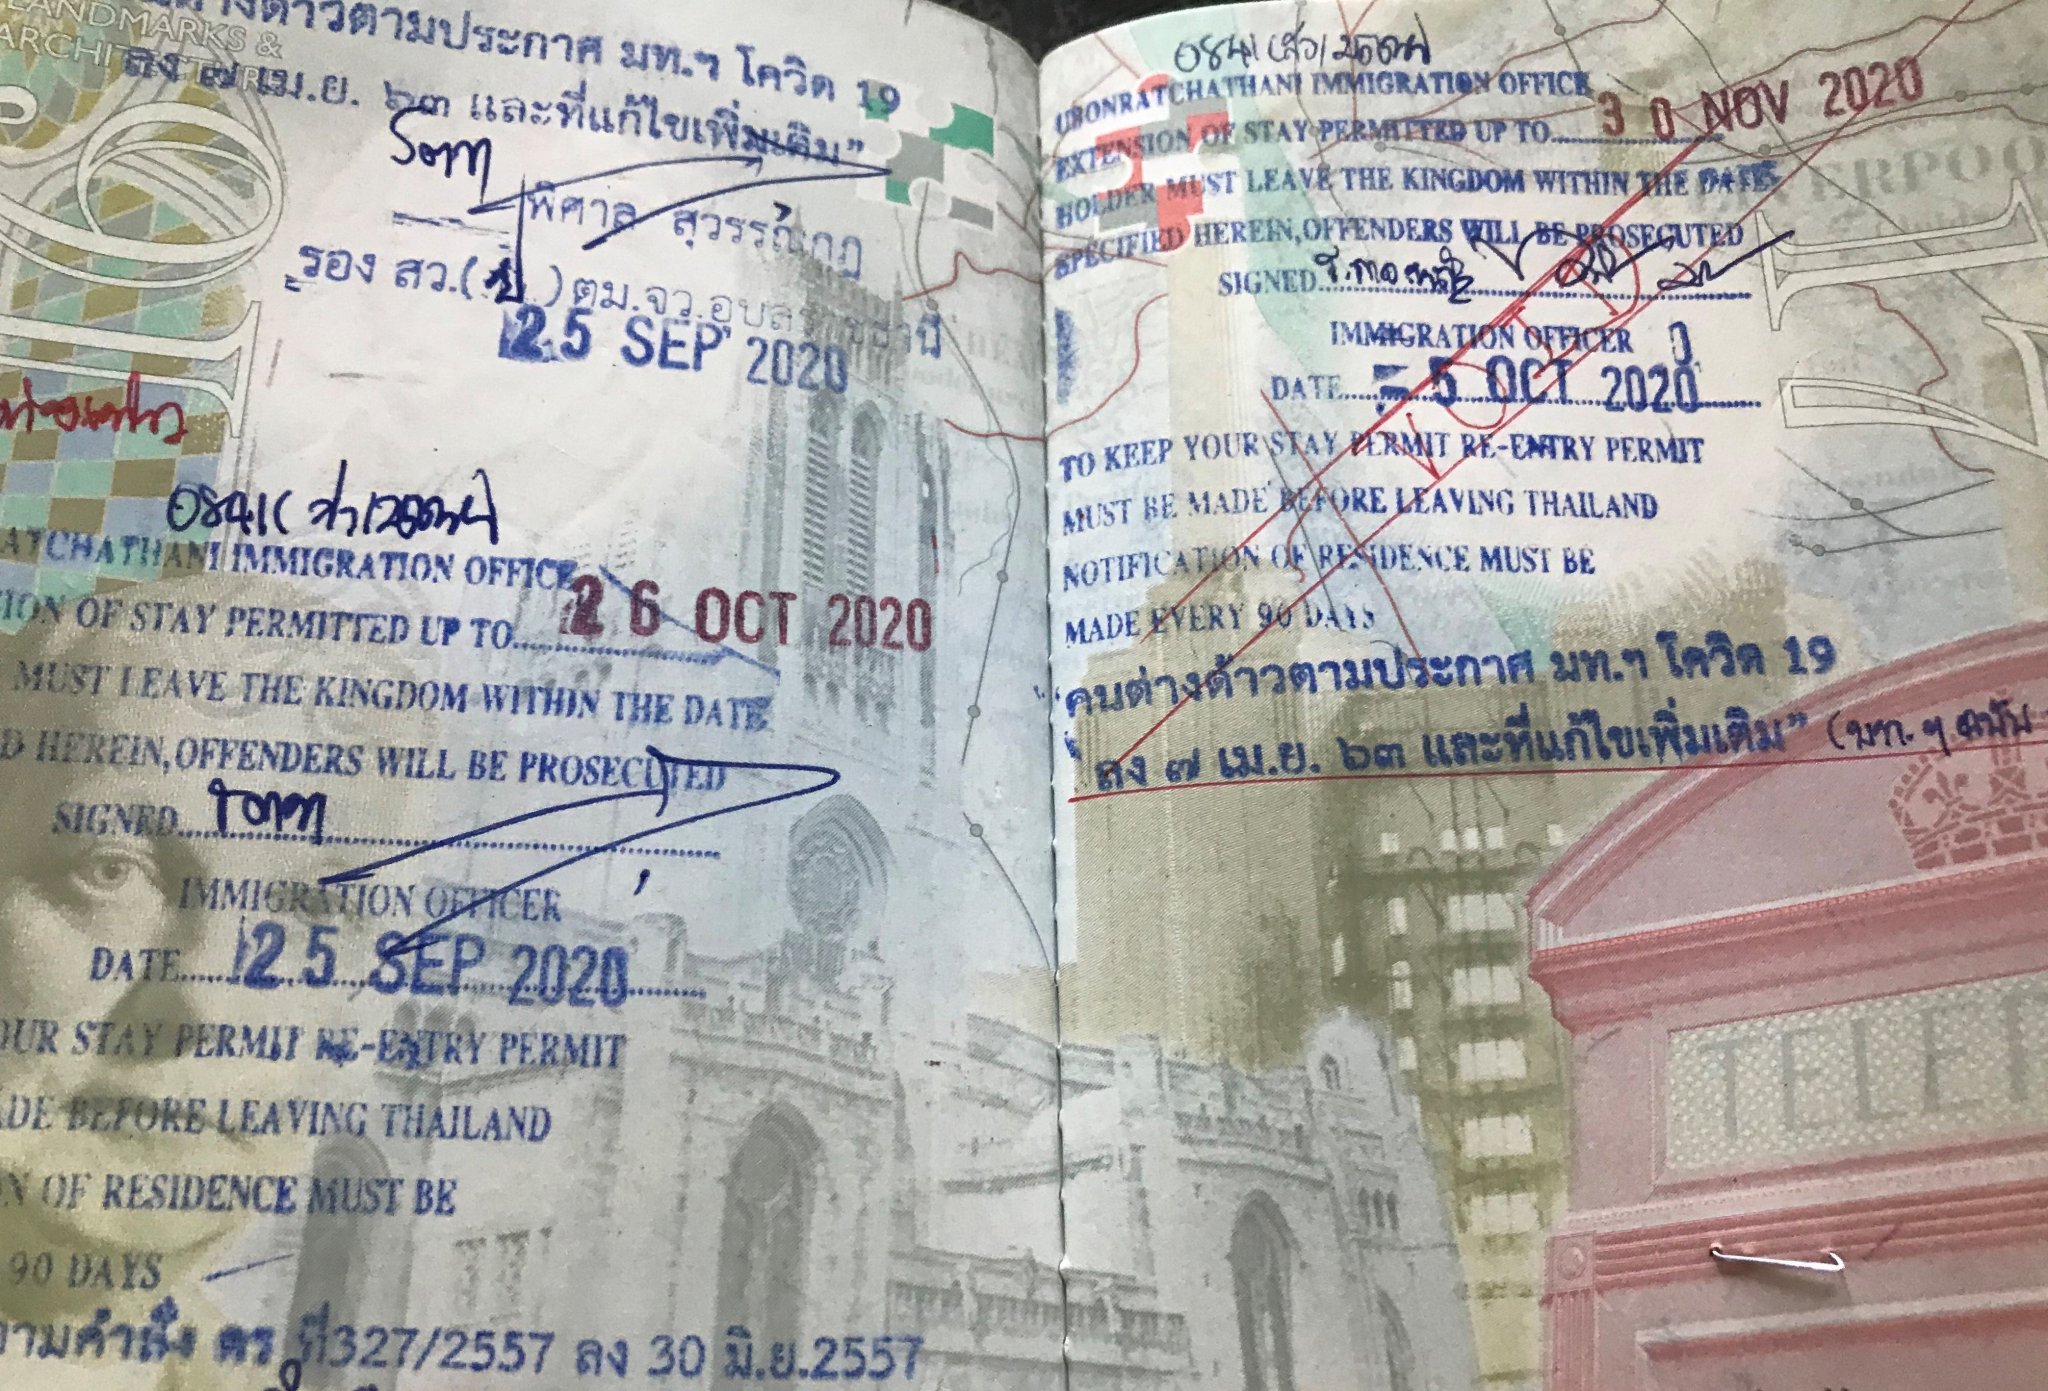 LANDMARKS &
ARCHITECTURE
างด้าวตามประกาศ มท.ฯ โควิด 19
ลง ๗ เม.ย. ๖๓ และที่แก้ไขเพิ่มเติม"
พิศาล สุวรรณ
รอง สว.( ) ตม.จว.อุบลราชธานี
25 SEP 2020
0841
ATCHATHANI IMMIGRATION OFFICE
ION OF STAY PERMITTED UP TO 26 OCT 2020
MUST LEAVE THE KINGDOM WITHIN THE DATE
D HEREIN, OFFENDERS WILL BE PROSECUTED
SIGNED
IMMIGRATION OFFICER
DATE 25 SEP 2020
OUR STAY PERMIT RE-ENTRY PERMIT
ADE BEFORE LEAVING THAILAND
ON OF RESIDENCE MUST BE
90 DAYS
ตามคำสั่ง ตร ที่327/2557 ลง 30 มิ.ย.2557
0841
UBONRATCHATHANI IMMIGRATION OFFICE
EXTENSION OF STAY PERMITTED UP TO 30 NOV 2020
HOLDER MUST LEAVE THE KINGDOM WITHIN THE DATE
SPECIFIED HEREIN, OFFENDERS WILL BE PROSECUTED
SIGNED
IMMIGRATION OFFICER
DATE - 5 OCT 2020
VOID
TO KEEP YOUR STAY PERMIT RE-ENTRY PERMIT
MUST BE MADE BEFORE LEAVING THAILAND
NOTIFICATION OF RESIDENCE MUST BE
MADE EVERY 90 DAYS
"คนต่างด้าวตามประกาศ มท.ฯ โควิด 19
ลง ๗ เม.ย. ๖๓ และที่แก้ไขเพิ่มเติม" (มท.ฯ ฉบับ
ERPOO
TELEP